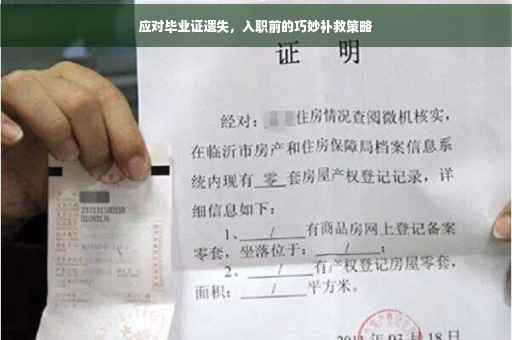 应对毕业证遗失，入职前的巧妙补救策略
证 明
经对：住房情况查阅微机核实，
在临沂市房产和住房保障局档案信息系
统内现有 零 套房屋产权登记记录，详
细信息如下：
1、 / 有商品房网上登记备案
零套，坐落位于： / ；
2、 / 有产权登记房屋零套，
面积： / 平方米。
03 月 18 日